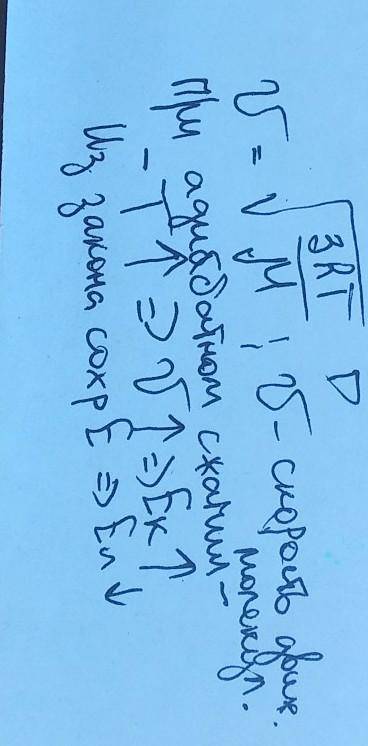 ▽
v = √(3RT/M) ; v – скорость движ. молекул.
При адиабатном сжатии –
– T↑ ⇒ v↑ ⇒ Eк↑
Из закона сохр E ⇒ Eп↓